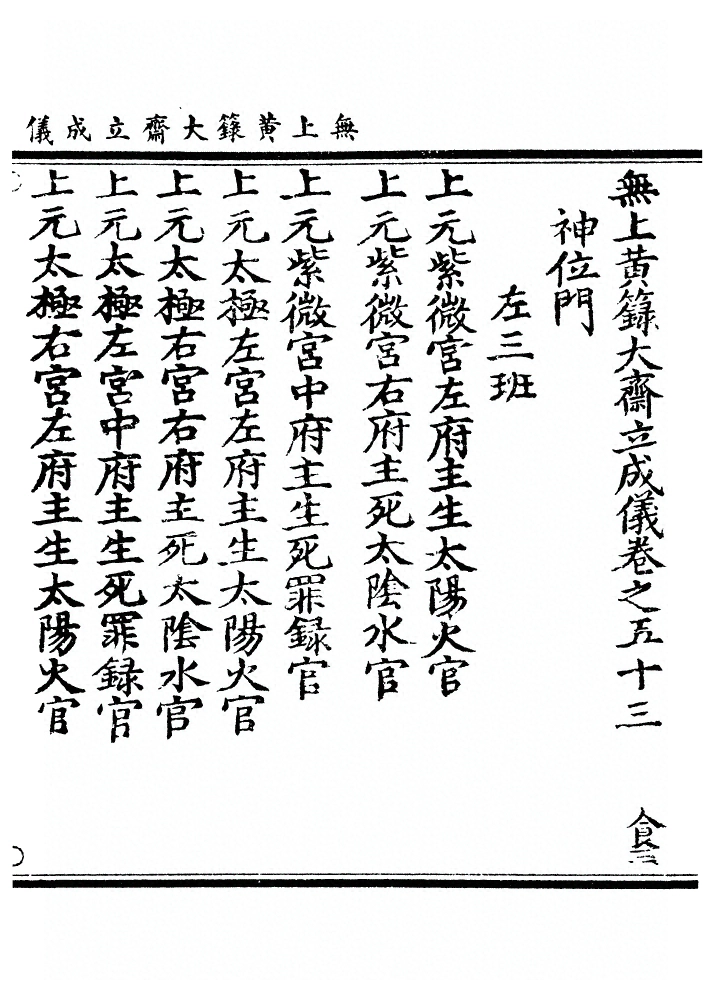 無上黄籙大齋立成儀
無上黄籙大齋立成儀卷之五十三 食三
神位門
左三班
上元紫微宮左府主生太陽火官
上元紫微宮右府主死太陰水官
上元紫微宮中府主生死罪録官
上元太極左宮左府主生太陽火官
上元太極右宮右府主死太陰水官
上元太極左宮中府主生死罪録官
上元太極右宮左府主生太陽火官